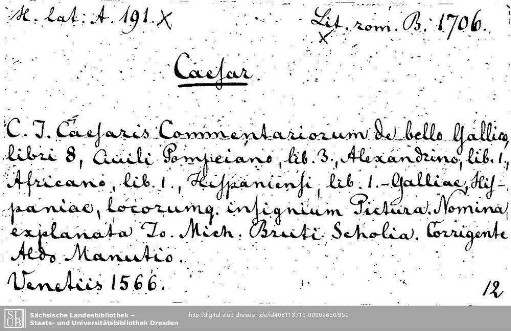 H. lat. A. 191. X
Lit. rom. B. 1706.
X
Caesar
C. J. Caesaris Commentariorum de bello Gallico,
libri 8, Civili Pompeiano, lib. 3., Alexandrino, lib. 1.,
Africano, lib. 1., Hispaniensi, lib. 1. - Galliae, His-
paniae, locorumq. insignium Pictura. Nomina
explanata Jo. Mich. Bruti Scholia. Corrigente
Aldo Manutio.
Venetiis 1566.
12
SLUB
Sächsische Landesbibliothek –
Staats- und Universitätsbibliothek Dresden